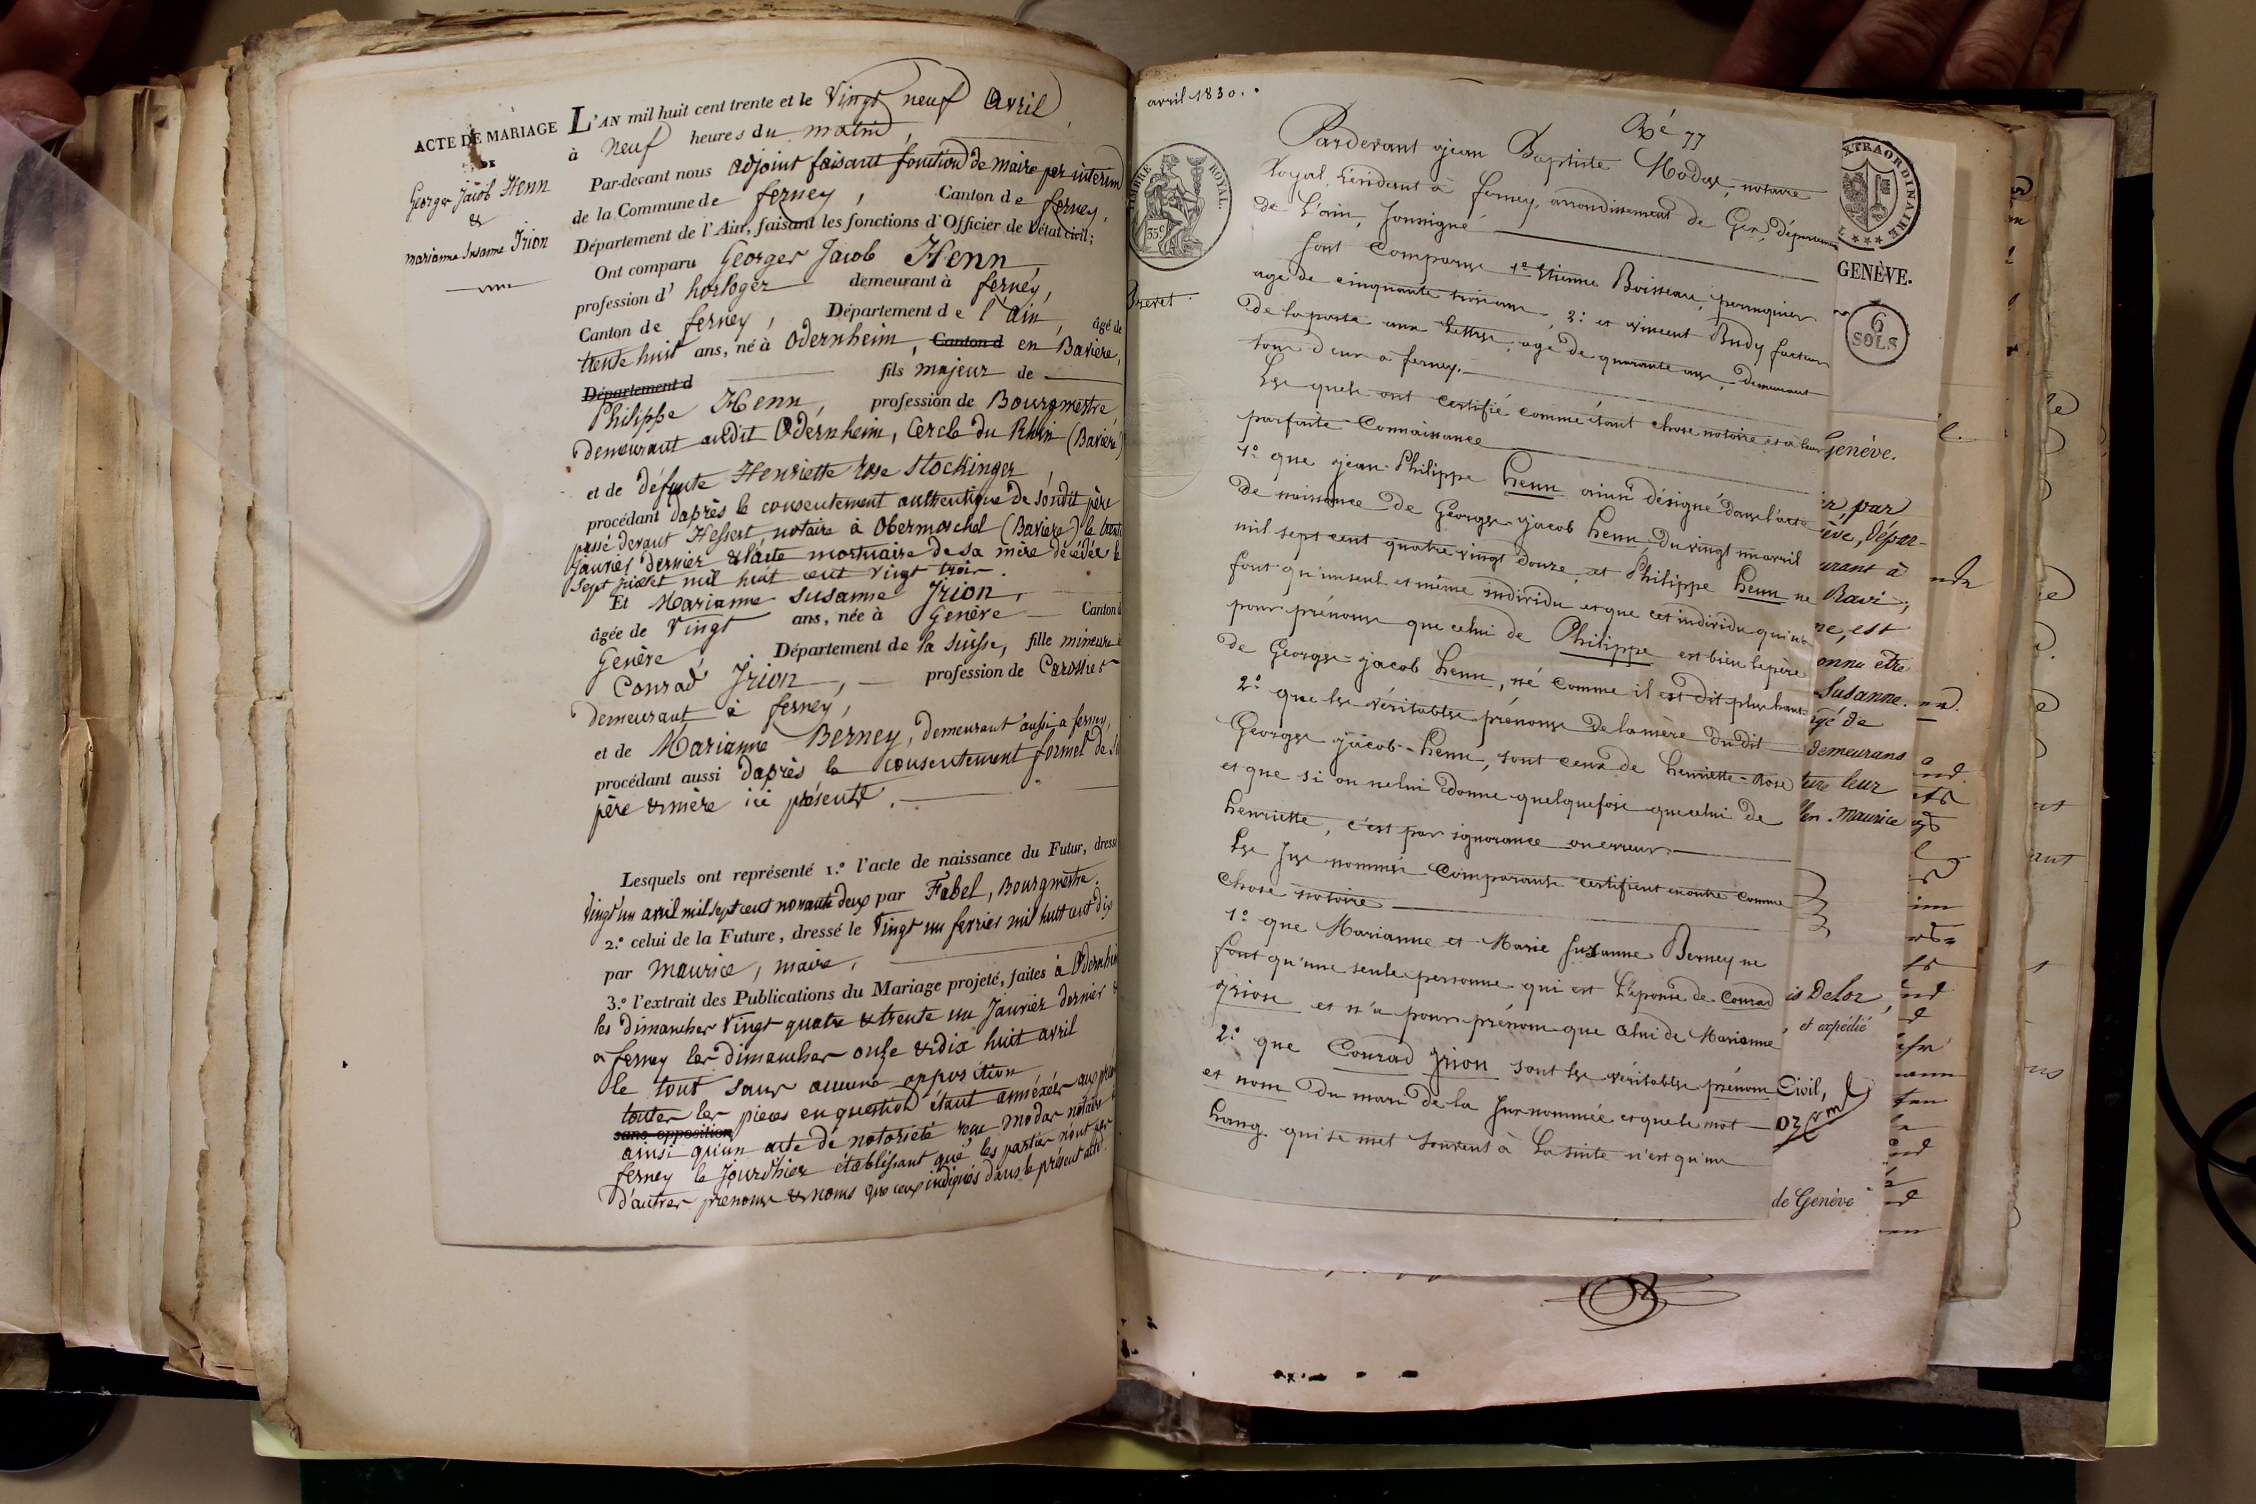 ACTE DE MARIAGE
DE
George Jacob Henn
&
marianne Susanne Irion
L'AN mil huit cent trente et le Vingt neuf Avril
à Neuf heures du matin,
Par-devant nous adjoint faisant fonction de maire par interim
de la Commune de ferney, Canton de ferney,
Département de l'Ain, faisant les fonctions d'Officier de l'état civil;
Ont comparu George Jacob Henn
profession d'horloger demeurant à ferney,
Canton de ferney, Département de l'Ain, âgé de
trente huit ans, né à Odernheim, Canton d en Baviere,
Département d fils majeur de
Philippe Henn, profession de Bourgmestre
demeurant audit Odernheim, Cercle du Rhin (Baviere)
et de défunte Henriette rose Stockinger,
procédant d'après le consentement authentique de son dit père
passé devant Hessert, notaire à Obermoschel (Baviere) le trente
janvier dernier & l'acte mortuaire de sa mère décédée le
Sept mil huit cent vingt trois.
Et Marianne Susanne Irion,
âgée de Vingt ans, née à Genève Canton d
Genève, Département de la Suisse, fille mineure d
Conrad Irion, profession de Carossier
demeurant à ferney,
et de Marianne Berney, demeurant aussi a ferney,
procédant aussi d'après le consentement formel de S
père & mère ici présents.
Lesquels ont représenté 1.° l'acte de naissance du Futur, dressé
Vingt un avril mil sept cent novante deux par Fabel, Bourgmestre.
2.° celui de la Future, dressé le Vingt un fevrier mil huit cent dix
par maurice, maire,
3.° l'extrait des Publications du Mariage projeté, faites à Odernheim
les dimanches Vingt quatre & trente un Janvier dernier &
a ferney les dimanches onze & dix huit avril
le tout sans aucune opposition
toutes les pieces en question étant annéxées aux
sans opposition
ainsi qu'un acte de notorieté reçu modas notaire
ferney le Jourd'hier établissant que les parties n'ont pas
d'autres prénoms & noms que ceux indiqués dans le présent acte.
avril 1830.
77
TIMBRE ROYAL.
35c
Brevet.
Pardevant jean Baptiste Modas, notaire
Royal, résidant à ferney, arrondissement de Gex, département
de l'ain, soussigné
Sont comparus 1° Etienne Boisseau, perruquier
agé de cinquante trois ans, 2° et vincent Budy facteur
de la poste aux lettres, agé de quarante ans, demeurant
tous deux à ferney.
Lesquels ont certifié comme étant chose notoire et à leur
parfaite connaissance
1° que jean-Philippe henn ainsi désigné dans l'acte
de naissance de George jacob henn, du vingt un avril
mil sept cent quatre vingt douze, et Philippe henn ne
font qu'un seul et même individu et que cet individu qui n'a
pour prénoms que celui de Philippe est bien le père
de George-jacob henn, né comme il est dit plus haut.
2° que les véritables prénoms de la mère du dit
George jacob-henn, sont ceux de henriette-Rose
et que si on ne lui donne quelquefois que celui de
henriette, c'est par ignorance ou erreur.
Les sus nommés comparants certifient en outre comme
chose notoire
1° que Marianne et Marie Suzanne Berney ne
font qu'une seule personne qui est l'épouse de Conrad
yrion et n'a pour prénom que celui de Marianne
2° que Conrad yrion sont les véritables prénom
et nom du mari de la sus nommée et que le mot
hang qui se met souvent à la suite n'est qu'un
EXTRAORDINAIRE
GENÈVE.
6
SOLS
Genève.
par
ève, dépar-
urant à
Ravi;
ne, est
onnu être
Susanne.
gé de
demeurans
ture leur
maurice
is Deloz,
et expédié
Civil,
oz
de Genève